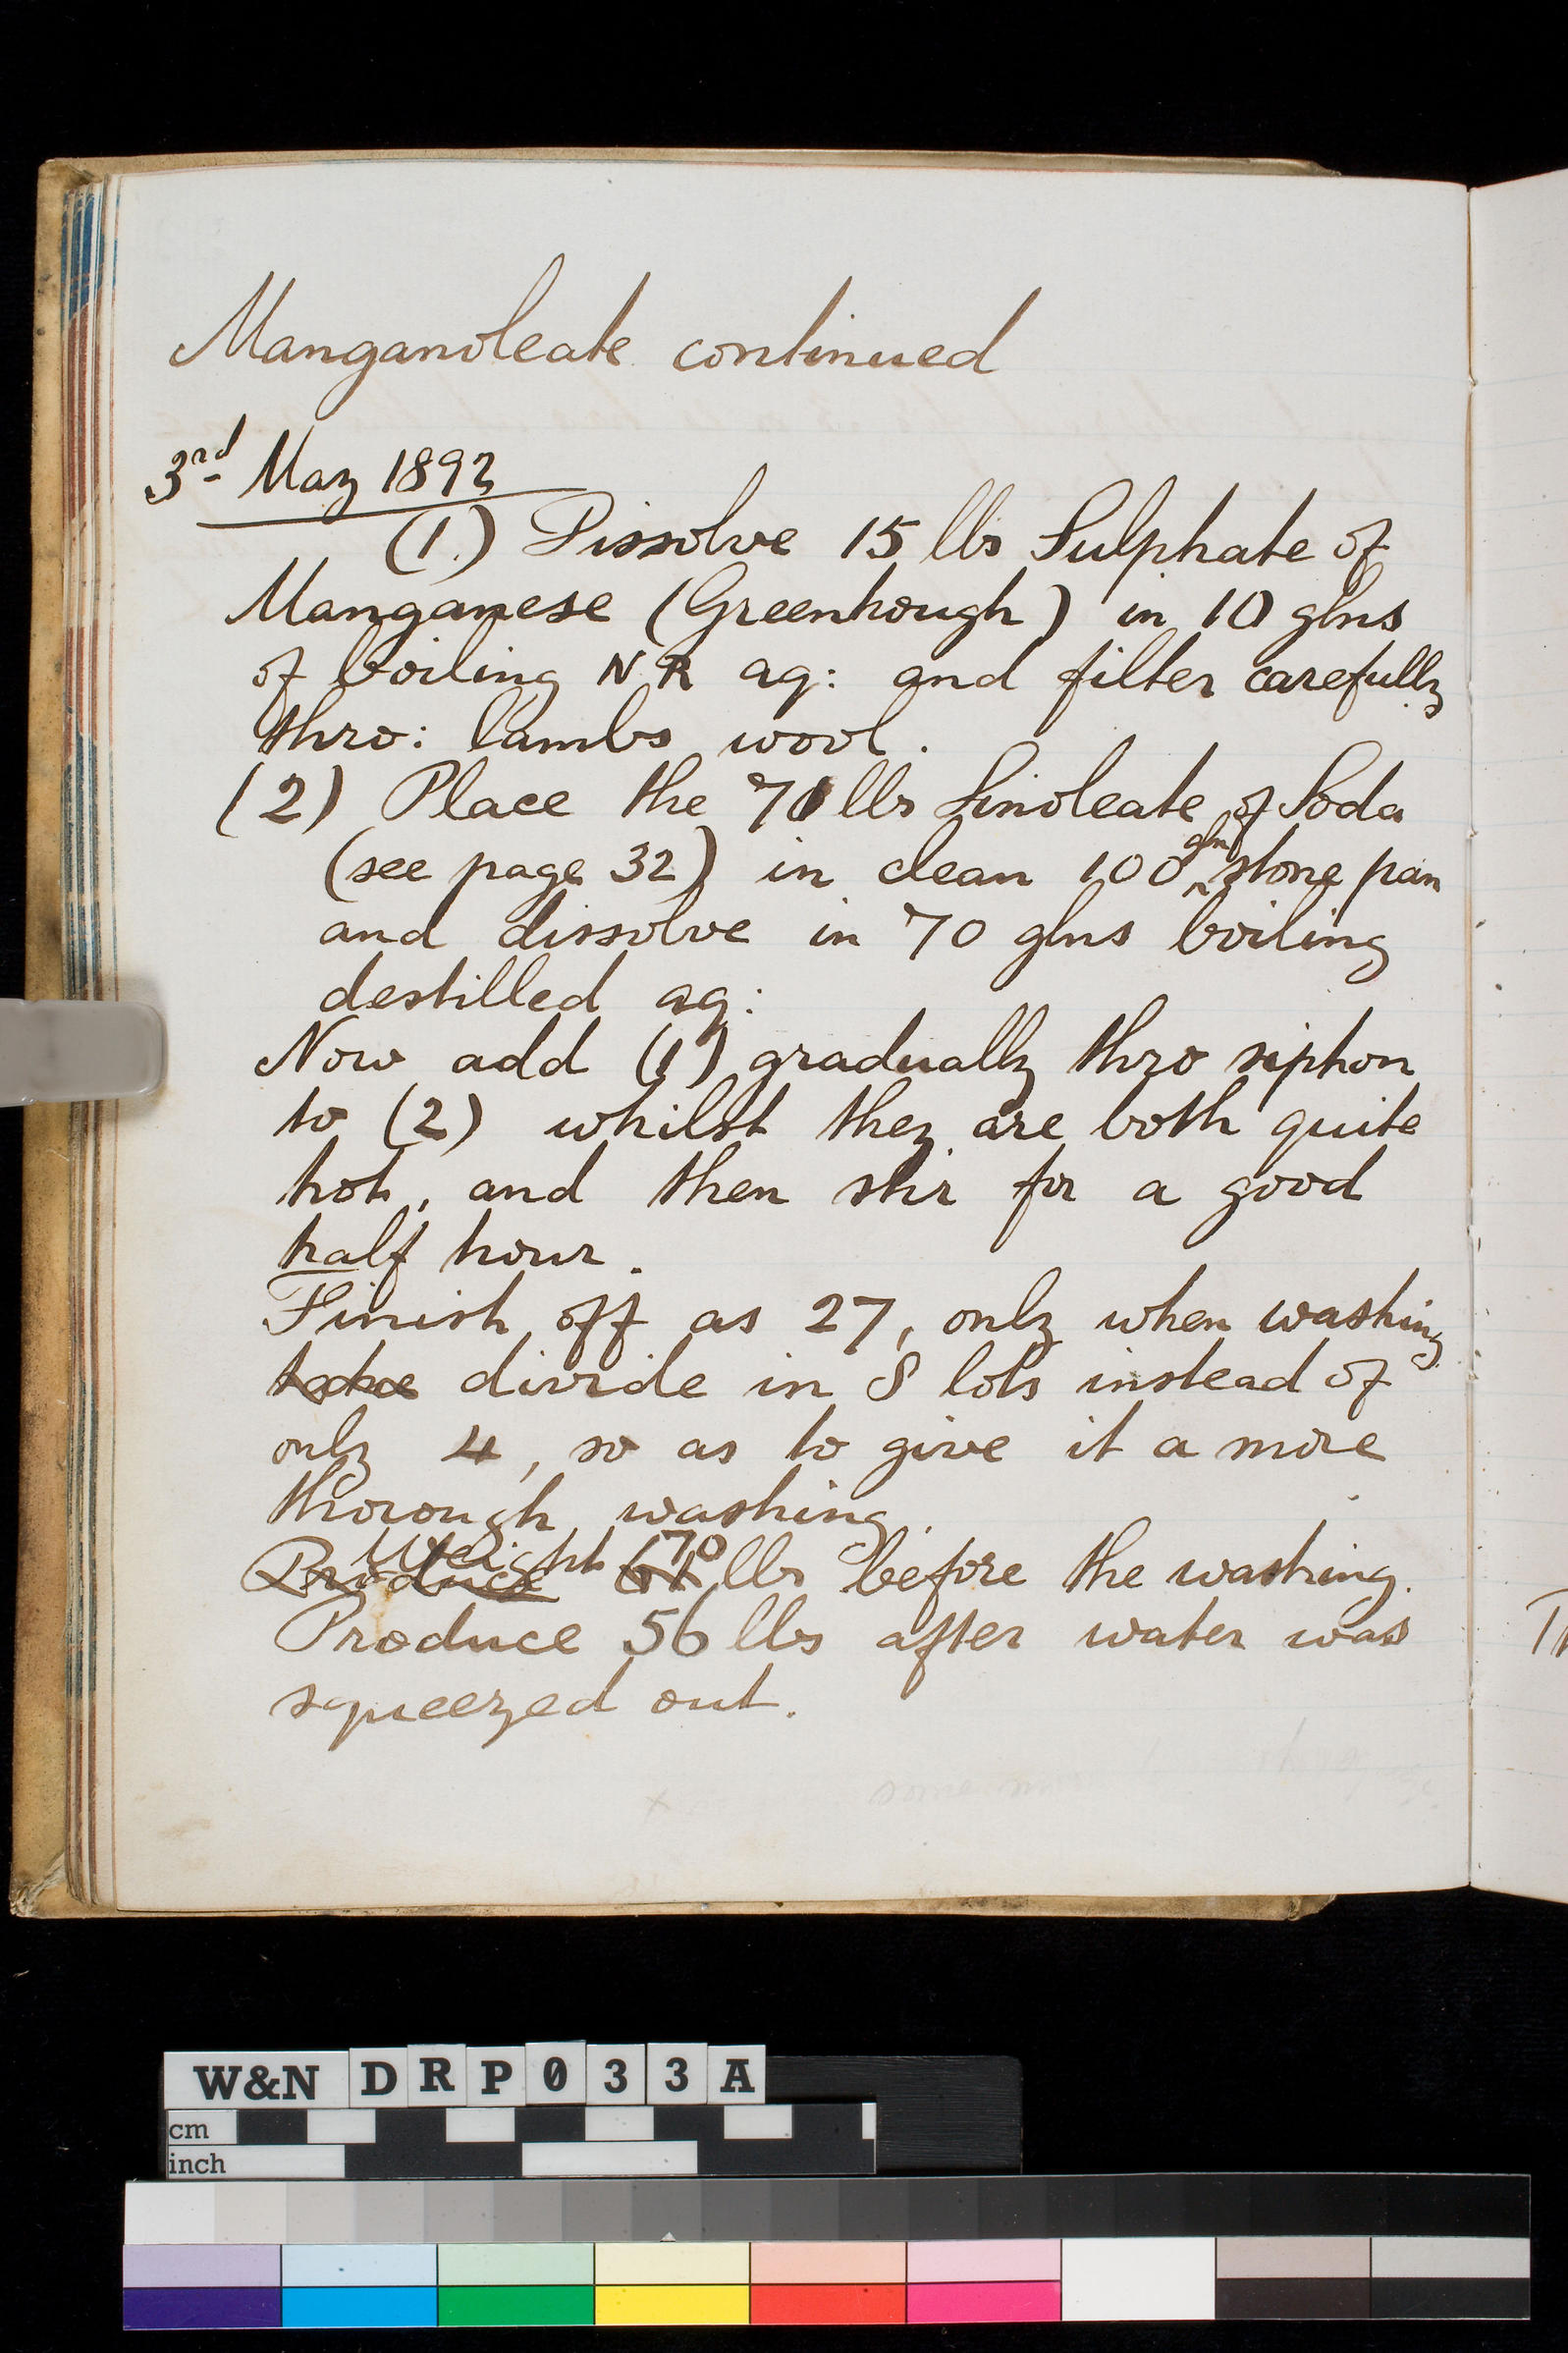 Manganoleate continued
3rd May 1892
(1.) Dissolve 15 lbs Sulphate of
Manganese (Greenhough) in 10 glns
of boiling N R aq: and filter carefully
thro: lambs wool.
(2) Place the 71 lbs Linoleate of Soda
(see page 32) in clean 100 gln stone pan
and dissolve in 70 glns boiling
destilled aq:
Now add (1) gradually thro siphon
to (2) whilst they are both quite
hot, and then stir for a good
half hour.
Finish off as 27, only when washing
take divide in 8 lots instead of
only 4, so as to give it a more
thorough washing.
Produce Weight 70 lbs before the washing.
Produce 56 lbs after water was
squeezed out.
W&N DRP033A
cm
inch